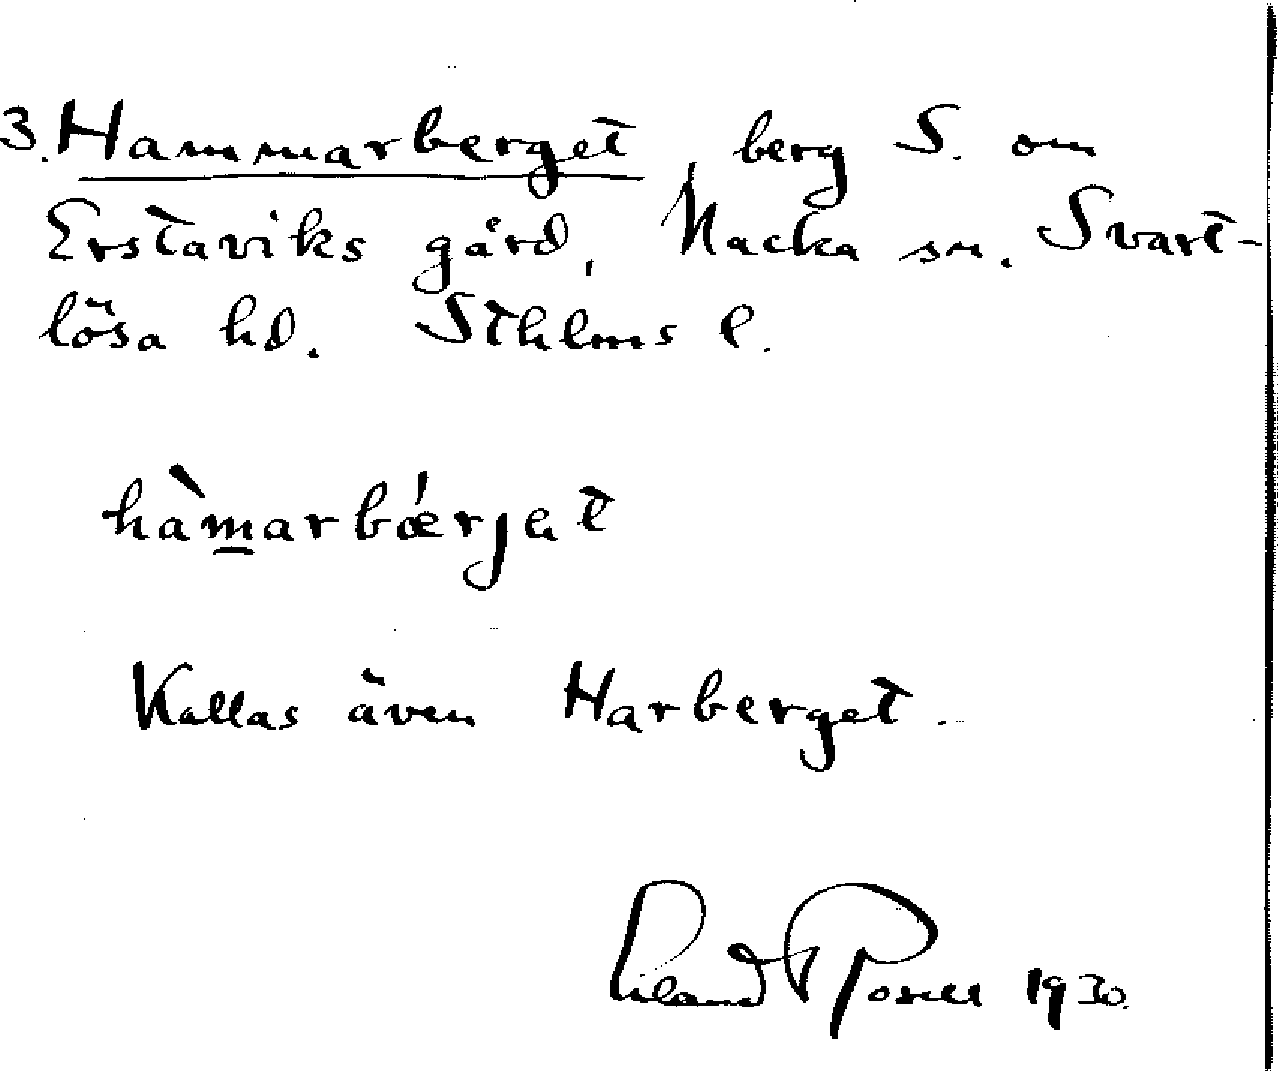 3. Hammarberget, berg S. om
Erstaviks gård, Nacka sn. Svart-
lösa hd. Sthlms l.
hàmarbǽrjat
Kallas även Harberget.
1930.